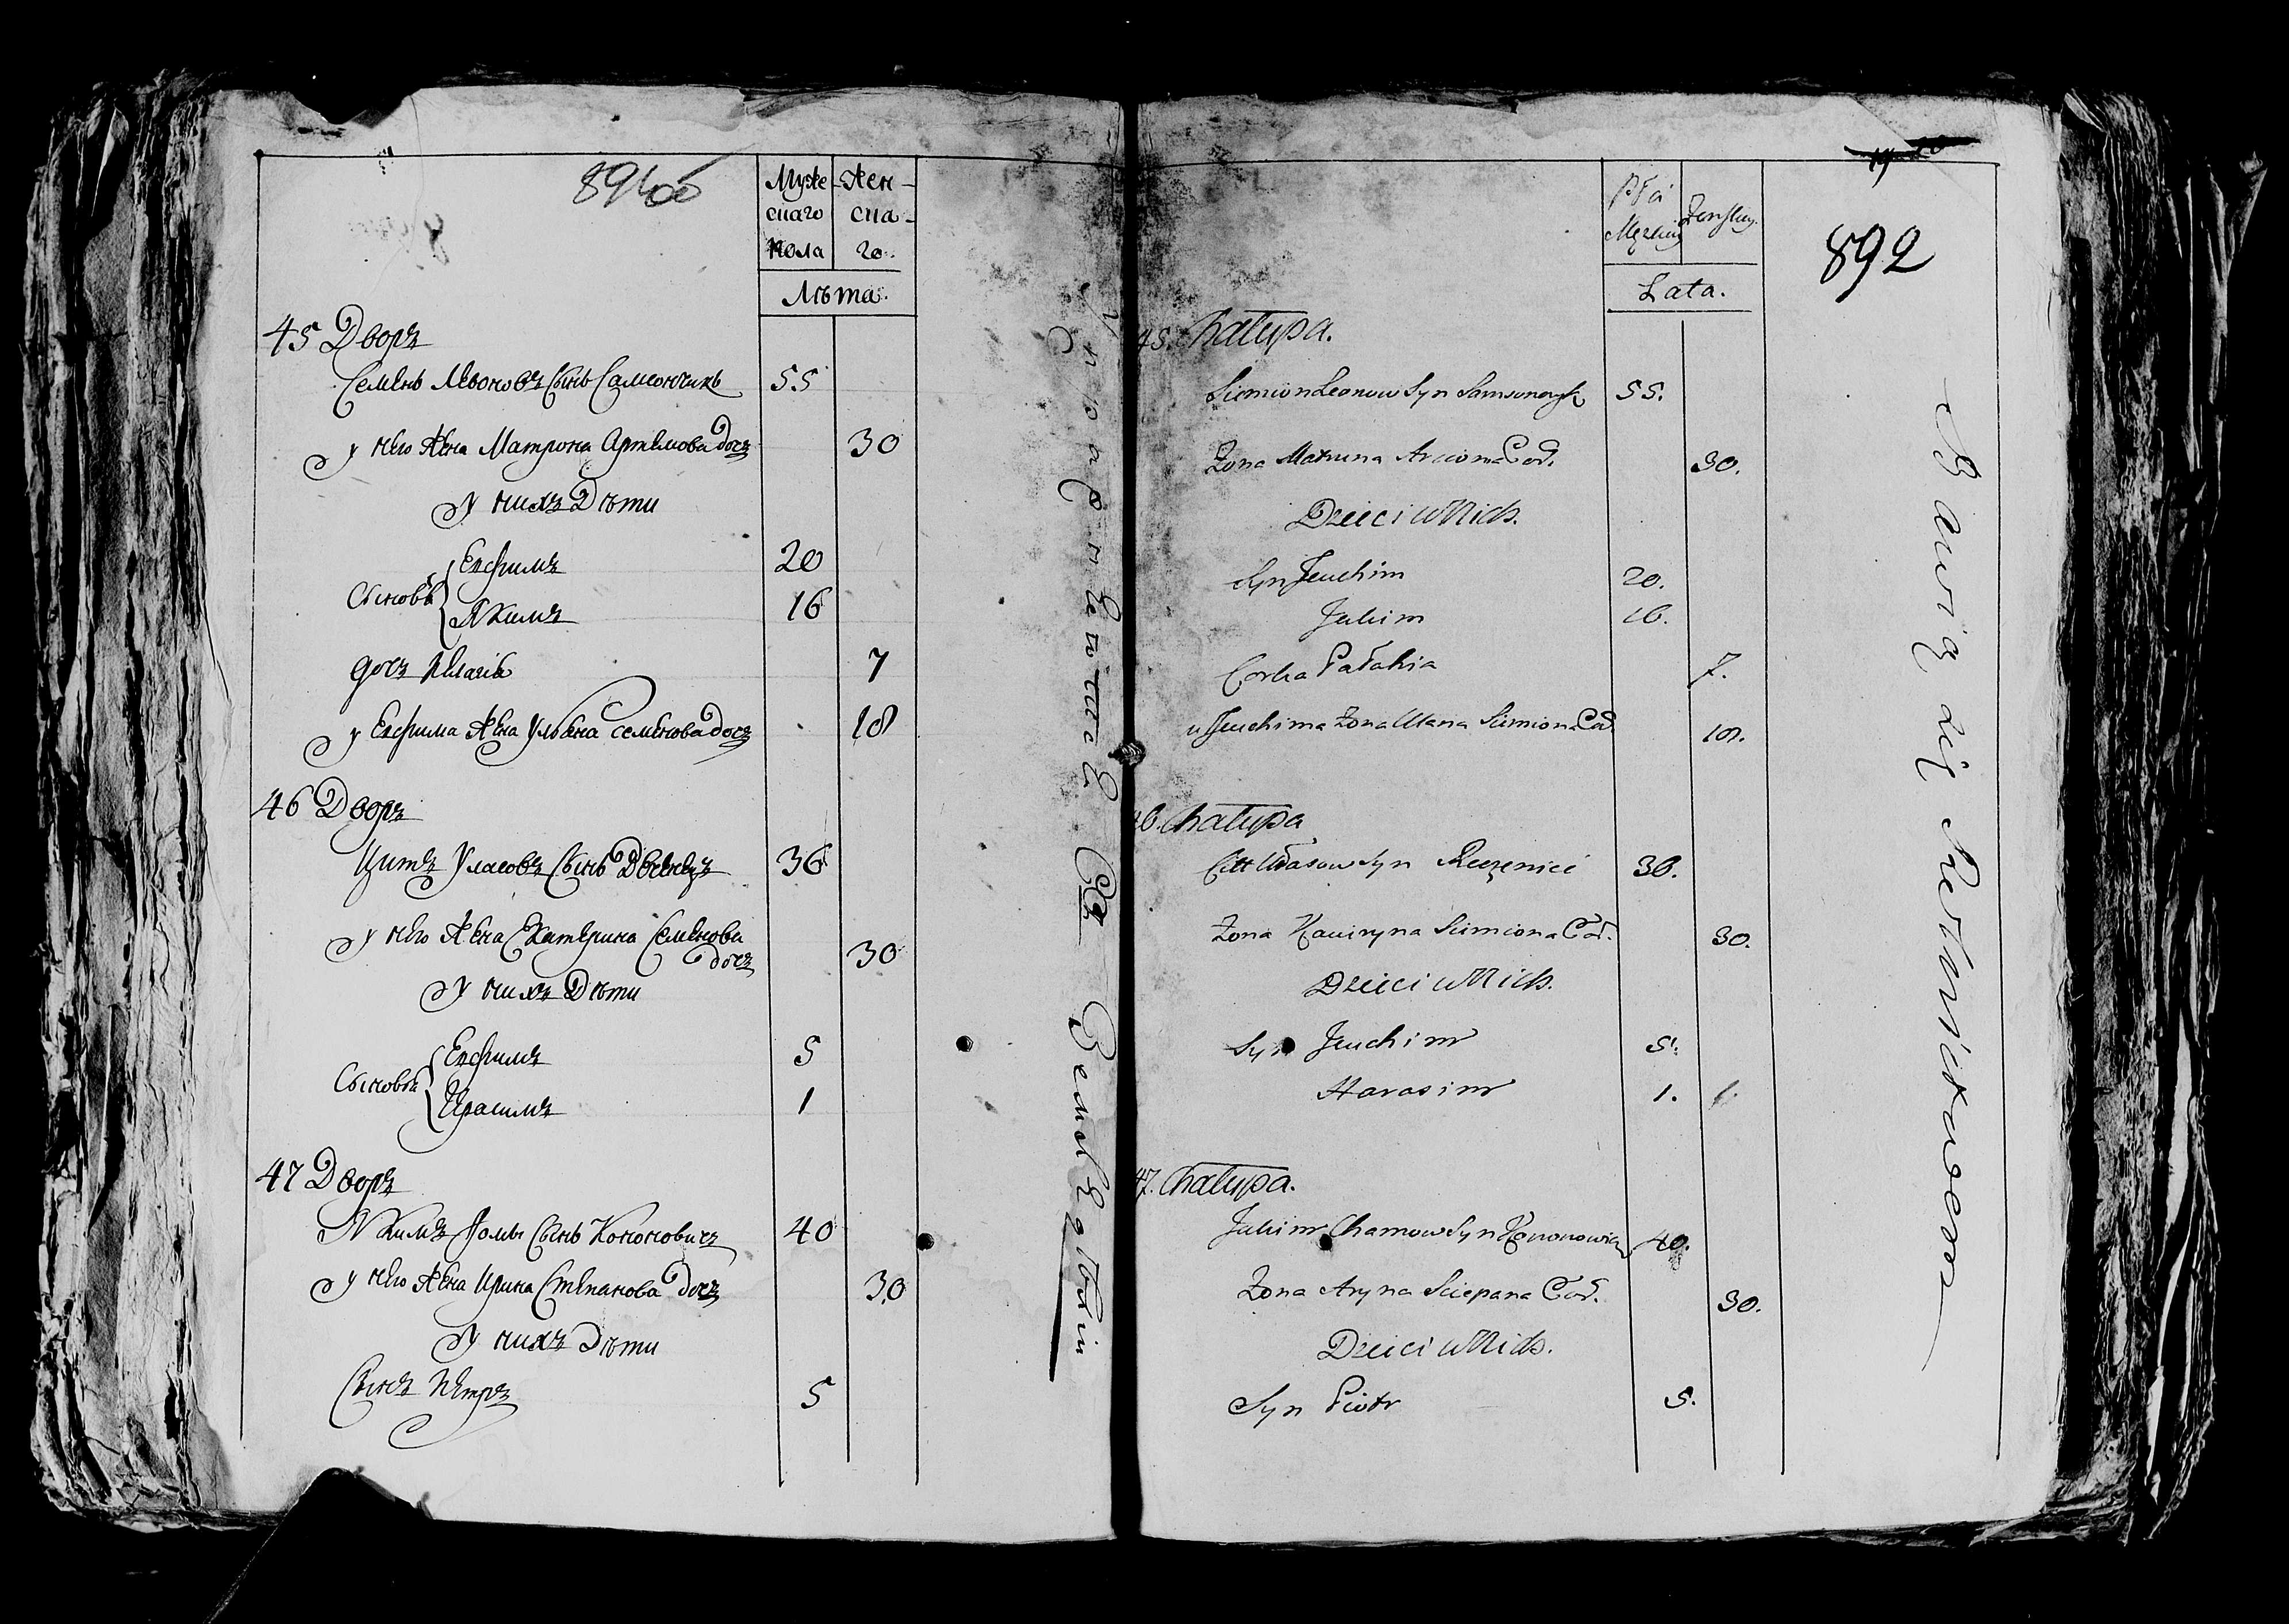 891 об
Муже-
скаго
пола
Жен-
ска-
го.
Лѣта.
45 Дворъ
Семенъ Леоновъ Сынъ Самсончикъ 55
у него Жена Матрона Артемова дочъ 30
У нихъ Дѣти
Сыновья
Евфимъ 20
Якимъ 16
дочъ Пелагія 7
у Евфима Жена Ульяна Семенова дочъ 18
46 Дворъ
Цитъ Уласовъ Сынъ 36
у него Жена Екатерина Семенова
дочъ 30
У нихъ Дѣти
Сыновья
Евфимъ 5
Ирасимъ 1
47 Дворъ
Якимъ Хомы Сынъ Кононовичъ 40
у него Жена Ирина Степанова дочъ 30
У нихъ Дѣти
Сынъ Петръ 5
Płci
Męzkiey
Zenskiey
Lata.
892
45. Chałupa.
Siemion Leonow Syn 55.
Zona Matruna Arcioma Cór. 30.
Dzieci u Nich.
Syn Jeuchim 20.
Jakim 16.
Corka Pałahia 7.
u Jeuchima Zona Ulana Siemiona Cór. 18.
46. Chałupa
Citt Ułasow Syn 36.
Zona Kaciryna Siemiona Cór. 30.
Dzieci u Nich.
Syn Jeuchim 5.
Harasim 1.
47. Chałupa.
Jakim Chamow Syn Kononowicz 40.
Zona Aryna Sciepana Cór. 30.
Dzieci u Nich.
Syn Piotr 5.